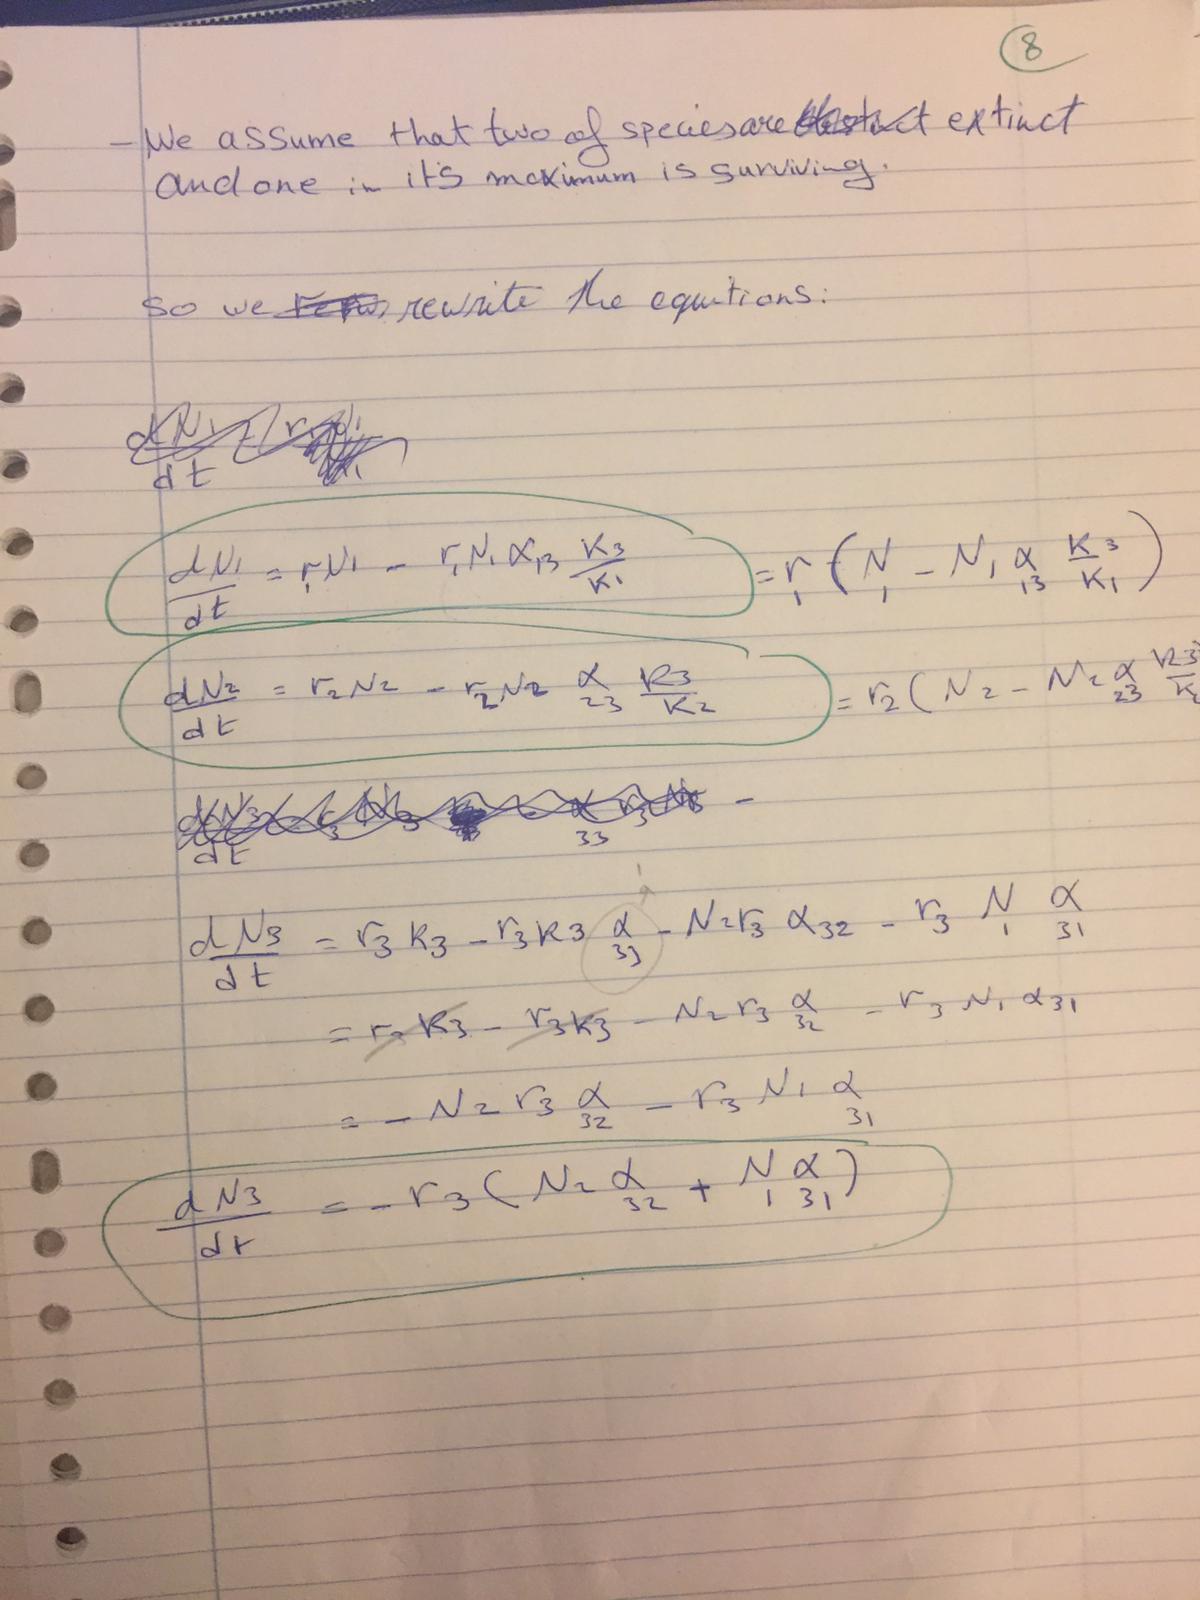 8
- We assume that two of species are extinct
and one in it's maximum is surviving.
so we rewrite the equitions:
dN₁/dt = r₁N₁ - r₁N₁α₁₃ K₃/K₁ = r₁(N₁ - N₁α₁₃ K₃/K₁)
dN₂/dt = r₂N₂ - r₂N₂ α₂₃ K₃/K₂ = r₂(N₂ - N₂α₂₃ K₃/K₂
dN₃/dt = r₃K₃ - r₃K₃ α₃₃ - N₂r₃ α₃₂ - r₃ N₁ α₃₁
= r₃K₃ - r₃K₃ - N₂r₃ α₃₂ - r₃N₁α₃₁
= - N₂r₃ α₃₂ - r₃N₁ α₃₁
dN₃/dt = - r₃(N₂α₃₂ + N₁α₃₁)